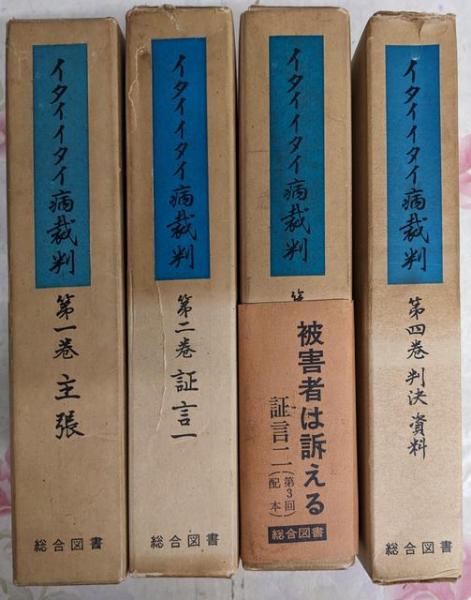 イタイイタイ病裁判
第一巻 主張
総合図書
イタイイタイ病裁判
第二巻 証言一
総合図書
イタイイタイ病裁判
第
被害者は訴える
証言二(第3回配本)
総合図書
イタイイタイ病裁判
第四巻 判決 資料
総合図書